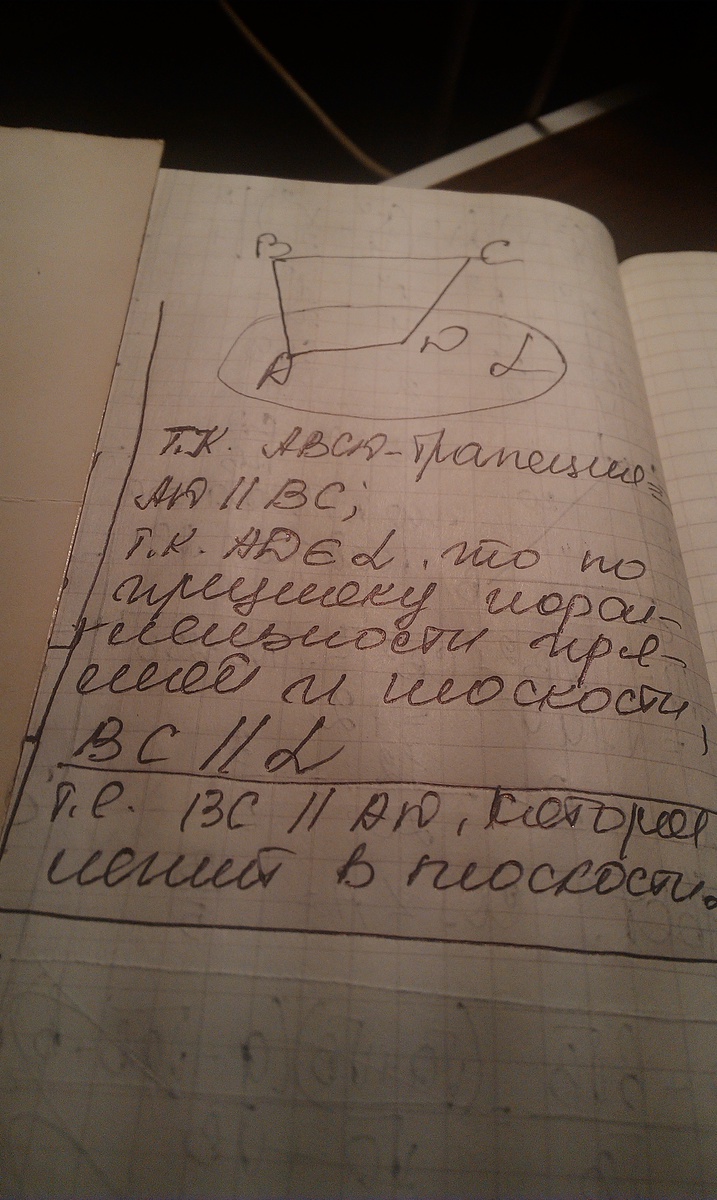 B C
A D α
т.к. ABCD - трапеция ⇒
AD || BC;
т.к. AD ∈ α, то по
признаку парал-
лельности пря-
мой и плоскости,
BC || α
т.е. BC || AD, которая
лежит в плоскости α